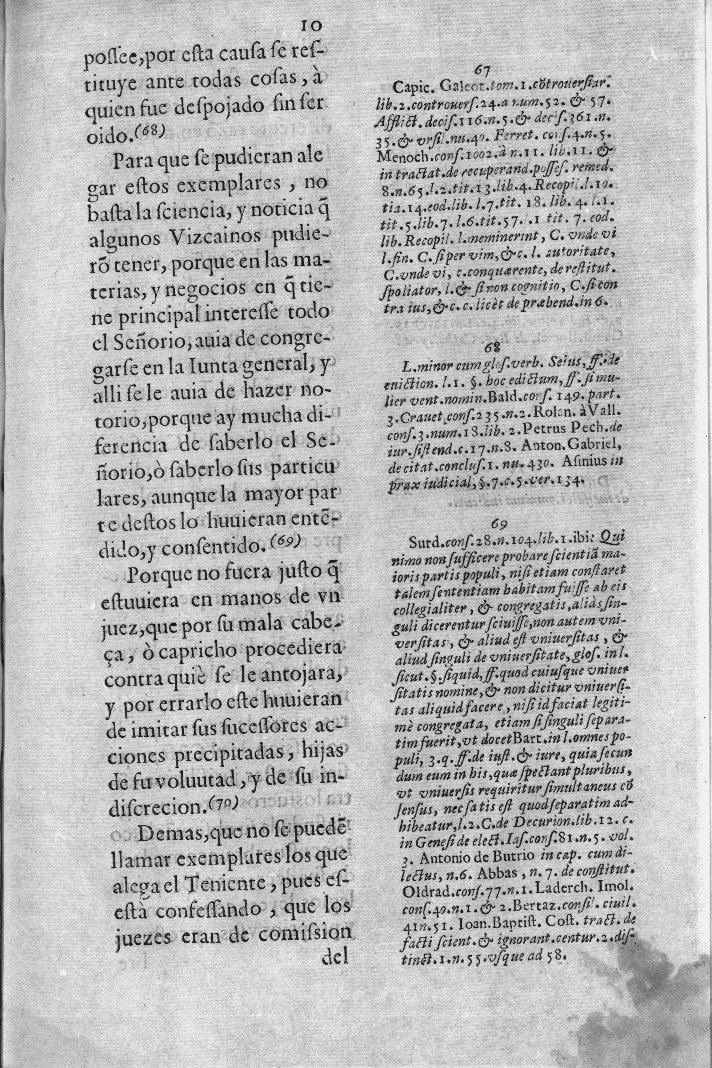 10
poſſee,por eſta cauſa ſe reſ-
tituye ante todas coſas, à
quien fue deſpojado ſin ſer
oido.(68)
Para que ſe pudieran ale
gar eſtos exemplares , no
baſta la ſciencia, y noticia q̃
algunos Vizcainos pudie-
rõ tener, porque en las ma-
terias, y negocios en q̃ tie-
ne principal intereſſe todo
el Señorio, auia de congre-
garſe en la Iunta general, y
alli ſe le auia de hazer no-
torio,porque ay mucha di-
ferencia de ſaberlo el Se-
ñorio,ò ſaberlo ſus particu
lares, aunque la mayor par
te deſtos lo huuieran entẽ-
dido,y conſentido.(69)
Porque no fuera juſto q̃
eſtuuiera en manos de vn
juez,que por ſu mala cabe-
ça, ò capricho procediera
contra quiè ſe le antojara,
y por errarlo eſte huuieran
de imitar ſus ſuceſſores ac-
ciones precipitadas, hijas
de ſu voluutad, y de ſu in-
diſcrecion.(70)
Demas,que no ſe puedẽ
llamar exemplares los que
alega el Teniente, pues eſ-
eſtà confeſſando , que los
juezes eran de comiſsion
del
67
Capic. Galeot. tom. 1. cõtrouerſiar.
lib. 2. controuerſ. 24. a num. 52. & 57.
Afflict. deciſ. 116. n. 5. & deciſ. 361. n.
35. & vrſil. nu. 40. Ferret. conſ. 4. n. 5.
Menoch. conſ. 1002. à n. 11. lib. 11. &
in tractat. de recuperand. poſſeſ. remed.
8. n. 65. l. 2. tit. 13. lib. 4. Recopil. l. 10.
tia. 14. eod. lib. l. 7. tit. 18. lib. 4. l. 1.
tit. 5. lib. 7. l. 6. tit. 57. l. 1 tit. 7. eod.
lib. Recopil. l. meminerint, C. vnde vi
l. fin. C. ſi per vim, & c. l. autoritate,
C. vnde vi, c. conquærente, de reſtitut.
ſpoliator, l. & ſi non cognitio, C. ſi con
tra ius, & c. c. licèt de præbend. in 6.
68
L. minor cum gloſ. verb. Seius, ff. de
euiction. l. 1. §. hoc edictum, ff. ſi mu-
lier vent. nomin. Bald. conſ. 149. part.
3. Crauet. conſ. 235. n. 2. Rolan. à Vall.
conſ. 3. num. 18. lib. 2. Petrus Pech. de
iur. ſiſtend. c. 17. n. 8. Anton. Gabriel,
de citat. concluſ. 1. nu. 430. Aſinius in
prax iudicial, §. 7. c. 5. ver. 134.
69
Surd. conſ. 28. n. 104. lib. 1. ibi: Qui
nimo non ſufficere probare ſcientiã ma-
ioris partis populi, niſi etiam conſtaret
talem ſententiam habitam fuiſſe ab eis
collegialiter, & congregatis, aliàs ſin-
guli dicerentur ſciuiſſe, non autem vni-
verſitas, & aliud eſt vniuerſitas , &
aliud ſinguli de vniuerſitate, gloſ. in l.
ſicut. §. ſiquid, ff. quod cuiuſque vniuer
ſitatis nomine, & non dicitur vniuerſi-
tas aliquid facere, niſi id faciat legiti-
mè congregata, etiam ſi ſinguli ſepara-
tim fuerit, vt docet Bart. in l. omnes po-
puli, 3. q. ff. de iuſt. & iure, quia ſecun
dum eum in his, quæ ſpectant pluribus,
vt vniuerſis requiritur ſimultaneus cõ
ſenſus, nec ſatis eſt quod ſeparatim ad-
hibeatur, l. 2. C. de Decurion. lib. 12. c.
in Geneſi de elect. Iaſ. conſ. 81. n. 5. vol.
3. Antonio de Butrio in cap. cum di-
lectus, n. 6. Abbas , n. 7. de conſtitut.
Oldrad. conſ. 77. n. 1. Laderch. Imol.
conſ. 40. n. 1. & 2. Bertaz. conſil. ciuil.
41 n. 51. Ioan. Baptiſt. Coſt. tract. de
facti ſcient. & ignorant. centur. 2. diſ-
tinct. 1. n. 55. vſque ad 58.